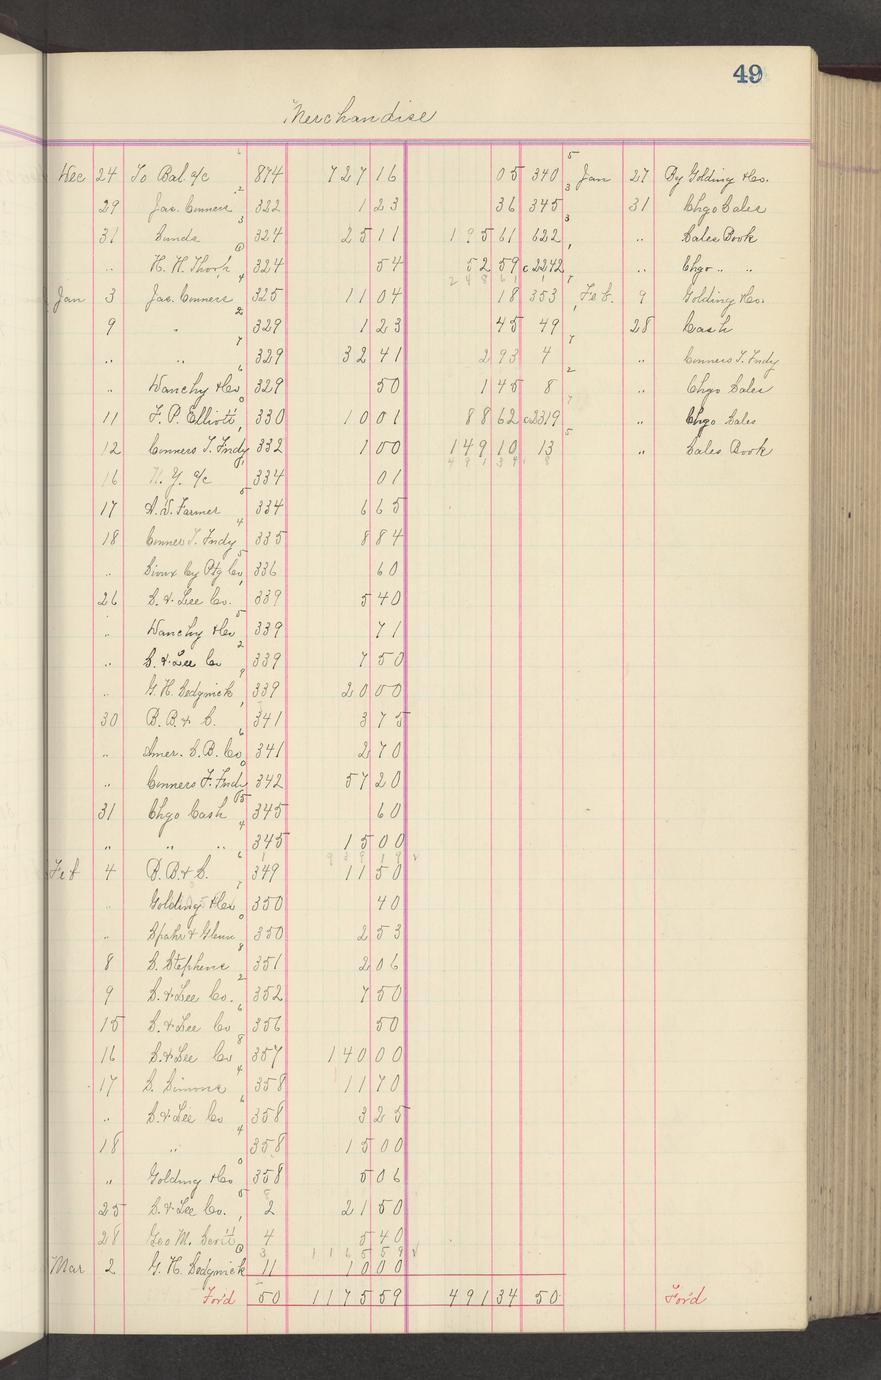 49
Merchandise
Dec 24 To Bal a/c 874 727 16 05 340 Jan 27 By Golding & Co.
29 Jas. Conners 322 1 23 36 345 31 Chgo Sales
31 Sunds 324 25 11 195 61 622 " Sales Book
" H. H. Thorp 324 54 52 59 c2242 " Chgo " "
248 61
Jan 3 Jas. Conners 325 11 04 18 353 Feb. 9 Golding & Co.
9 " 329 1 23 45 49 28 Cash
" " 329 32 41 2 93 4 " Conners T. Fndy
" Wanchy & Co 329 50 1 45 8 " Chgo Sales
11 F. P. Elliott 330 10 01 88 62 c2319 " Chgo Sales
12 Conners T. Fndy 332 1 00 149 10 13 " Sales Book
491 34
16 N. Y. a/c 334 01
17 A. D. Farmer 334 6 65
18 Conner T. Fndy 335 8 84
" Sioux Cy Ptg Co 336 60
26 S. & Lee Co. 339 5 40
" Wanchy & Co 339 71
" S. & Lee Co 339 7 50
" G. H. Sedgwick 339 20 00
30 B. B. & S. 341 3 75
" Amer. S. B. Co 341 2 70
" Conners T. Fndy 342 57 20
31 Chgo Cash 345 60
" " " 345 15 00
939 19 ✓
Feb 4 B. B. & S. 349 11 50
" Golding & Co 350 40
" Spahr & Glenn 350 2 53
8 S. Stephens 351 2 06
9 S. & Lee Co. 352 7 50
15 S. & Lee Co 356 50
16 S. & Lee Co 357 140 00
17 S. Simons 358 11 70
" S. & Lee Co 358 3 25
18 " 358 15 00
" Golding & Co 358 5 06
25 S. & Lee Co. 2 21 50
28 Geo M. Savitt 4 5 40
1165 59 ✓
Mar 2 G. H. Sedgwick 11 10 00
For'd 50 1175 59 491 34 50 For'd